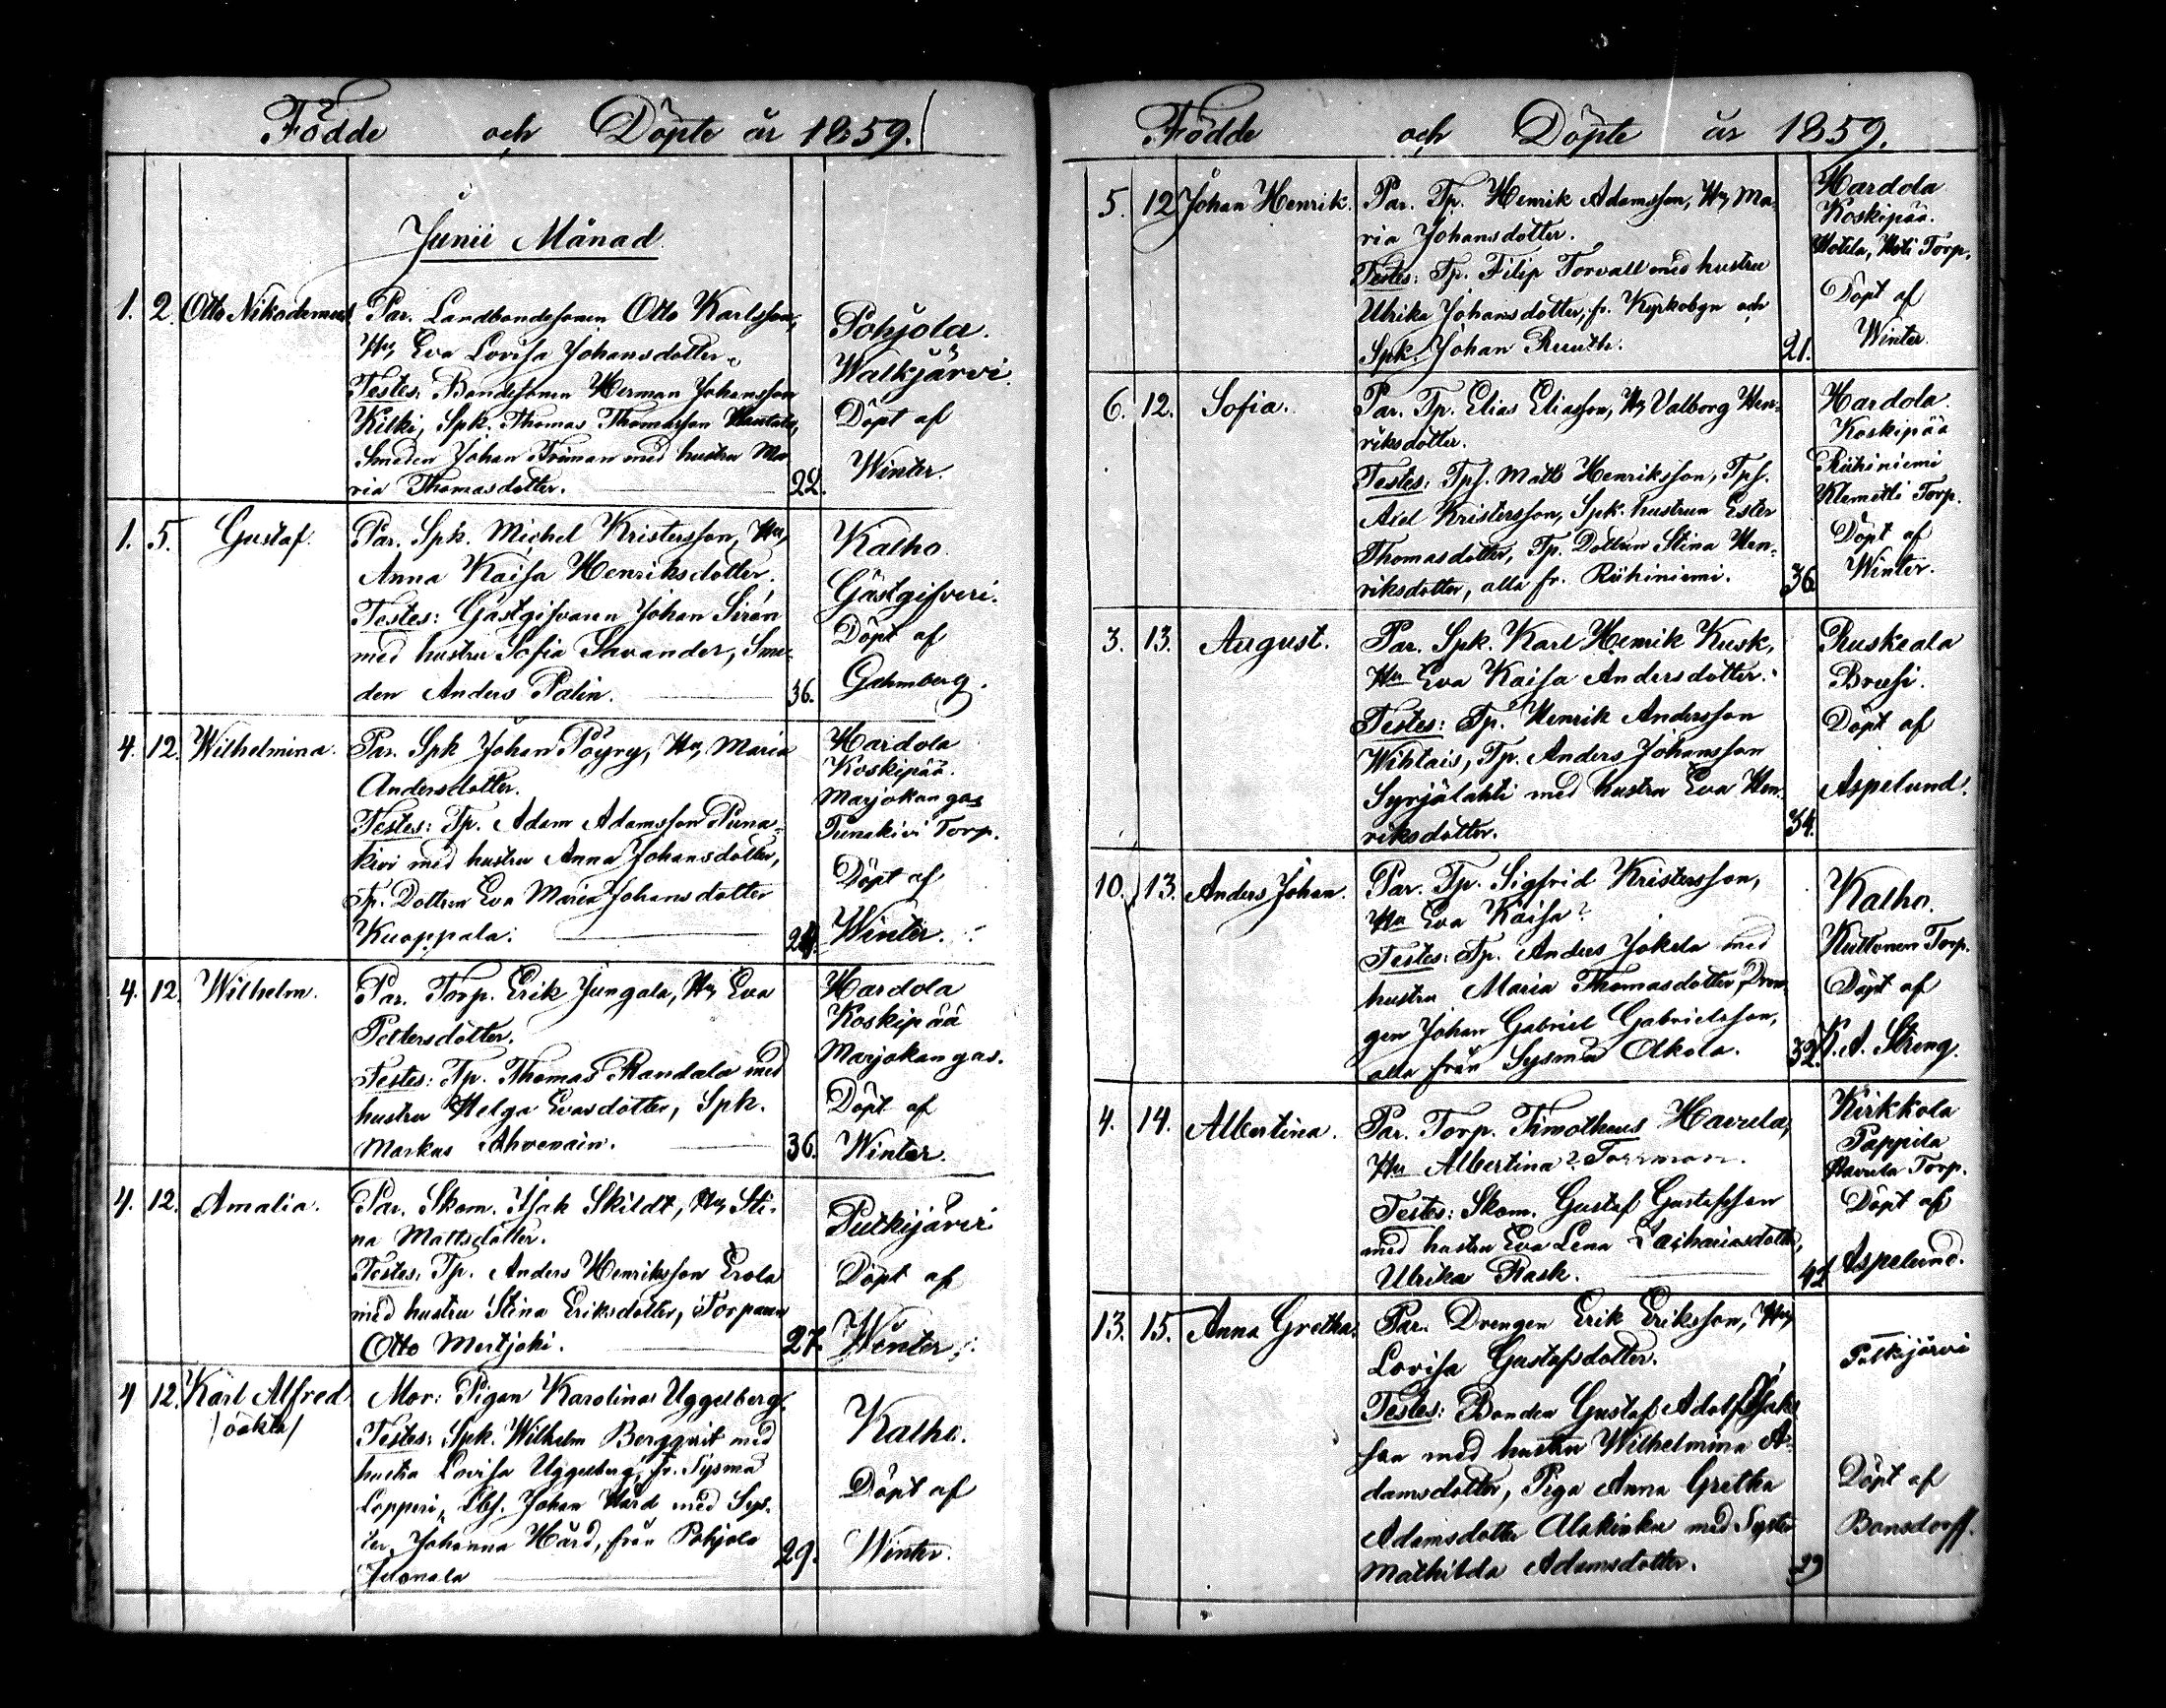 Födde och Döpte år 1859.
Junii Månad.
1. 2. Otto Nikodemus Par. Landbondesonen Otto Karlsson,
Hu, Eva Lovisa Johansdotter.
Testes: Bondesonen Herman Johansson
Kilki, Spk. Thomas Thomasson
Smeden Johan Friman med hustru Ma-
ria Thomasdotter.
22.
Pohjola.
Walkjärvi.
Döpt af
Winter.
1. 5. Gustaf. Par. Spk. Michel Kristersson, Hu,
Anna Kaisa Henriksdotter.
Testes: Gästgifvaren Johan Sirén
med hustru Sofia Savander, Sme-
den Anders Palin.
36.
Kalho.
Gästgifveri.
Döpt af
Gahmberg.
4. 12. Wilhelmina. Par. Spk Johan Pöyry, Hu, Maria
Andersdotter.
Testes: Tp. Adam Adamsson Puna-
kivi med hustru Anna Johansdotter,
Tp. Dottren Eva Maria Johansdotter
Kuoppala.
Hardola
Koskipää.
Marjokangas
Punakivi Torp.
Döpt af
Winter.
4. 12. Wilhelm. Par. Torp. Erik Jungala, Hu, Eva
Pettersdotter.
Testes: Tp. Thomas Randala med
hustru Helga Evasdotter, Spk.
Markus Ahvenain.
36.
Hardola
Koskipää
Marjokangas.
Döpt af
Winter.
4. 12. Amalia. Par. Skom. Isak Skildt, Hu, Sti-
na Mattsdotter.
Testes: Tp. Anders Henriksson Erola
med hustru Stina Eriksdotter, Torparen
Otto Mertjoki.
27.
Putkijärvi
Döpt af
Winter.
4 12. Karl Alfred
/oäkta/
Mor: Pigan Karolina Uggelberg.
Testes: Spk. Wilhelm Bergqvist med
hustru Lovisa Uggelberg, fr. Sysmä
Johan Hård med Sys-
ter Johanna Hård, från Pohjola
29.
Kalho.
Döpt af
Winter.
Födde och Döpte år 1859.
5. 12 Johan Henrik. Par. Tp. Henrik Adamsson, Hu, Ma-
ria Johansdotter.
Testes: Tp. Filip Torvall med hustru
Ulrika Johansdotter, fr. Kyrkobyn och
Spk. Johan Ruuth.
21.
Hardola
Koskipää.
Torp.
Döpt af
Winter.
6. 12. Sofia. Par. Tp. Elias Eliasson, Hu, Valborg Hen-
riksdotter.
Testes: Tps. Matts Henriksson, Tps.
Axel Kristersson, Spk. hustrun Ester
Thomasdotter, Tp. Dottren Stina Hen-
riksdotter, alla fr. Riihiniemi.
36
Hardola.
Koskipää
Riihiniemi
Klemetti Torp.
Döpt af
Winter.
3. 13. August. Par. Spk. Karl Henrik Kusk,
Hu Eva Kaisa Andersdotter.
Testes: Tp. Henrik Andersson
Wihtais, Tp. Anders Johansson
Syrjälahti med hustru Eva Hen-
riksdotter.
34.
Ruskeala
Döpt af
Aspelund.
10. 13. Anders Johan. Par. Tp. Sigfrid Kristersson,
Hu Eva Kaisa?
Testes: Tp. Anders Jokela med
hustru Maria Thomasdotter, Dren-
gen Johan Gabriel Gabrielsson,
alla från Sysmä Olkola.
32.
Kalho.
Kuttonen Torp.
Döpt af
K. A. Streng.
4. 14. Albertina. Par. Torp. Timotheus Havula,
Hu Albertina? Forsman.
Testes: Skom. Gustaf Gustafsson
med hustru Eva Lena Zachariasdotter,
Ulrika Rask.
42
Kirkkola
Pappila
Havula Torp.
Döpt af
Aspelund.
13. 15. Anna Gretha. Par. Drengen Erik Eriksson, Hu,
Lovisa Gustafsdotter.
Testes: Bonden Gustaf Adolf Isaks-
son med hustru Wilhelmina A-
damsdotter, Piga Anna Gretha
Adamsdotter med Syster
Mathilda Adamsdotter.
29
Putkijärvi
Döpt af
Bonsdorff.